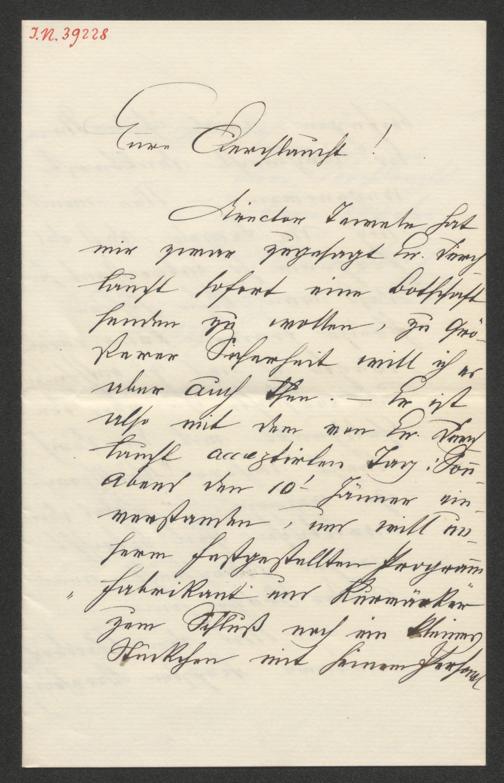 I.N. 39228
Eure Durchlaucht!
Director Jauner hat
mir zwar zugesagt Eu. Durch
laucht sofort eine Botschaft
senden zu wollen, zu grö-
ßerer Sicherheit will ich es
aber auch thun. — Er ist
also mit dem von Eu. Durch
laucht acceptirten Tag: Sonn
abend den 10t Jänner ein-
verstanden, und will un-
serm festgestellten Programm
"Fabrikant und Kurmärker"
zum Schluß noch ein kleines
Stückchen mit seinem Personal